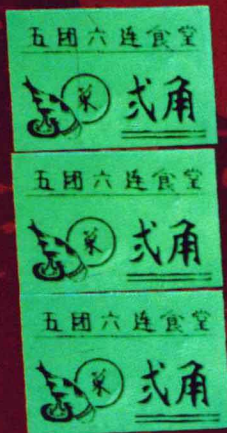 五团六连食堂
菜
弍角
五团六连食堂
菜
弍角
五团六连食堂
菜
弍角